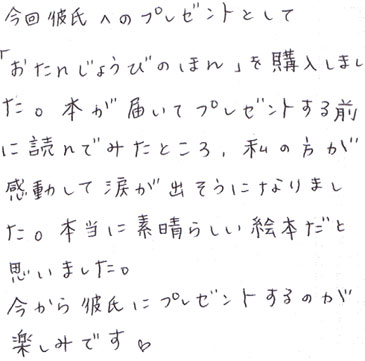 今回彼氏へのプレゼントとして
「おたんじょうびのほん」を購入しまし
た。本が届いてプレゼントする前
に読んでみたところ、私の方が
感動して涙が出そうになりまし
た。本当に素晴らしい絵本だと
思いました。
今から彼氏にプレゼントするのが
楽しみです♡